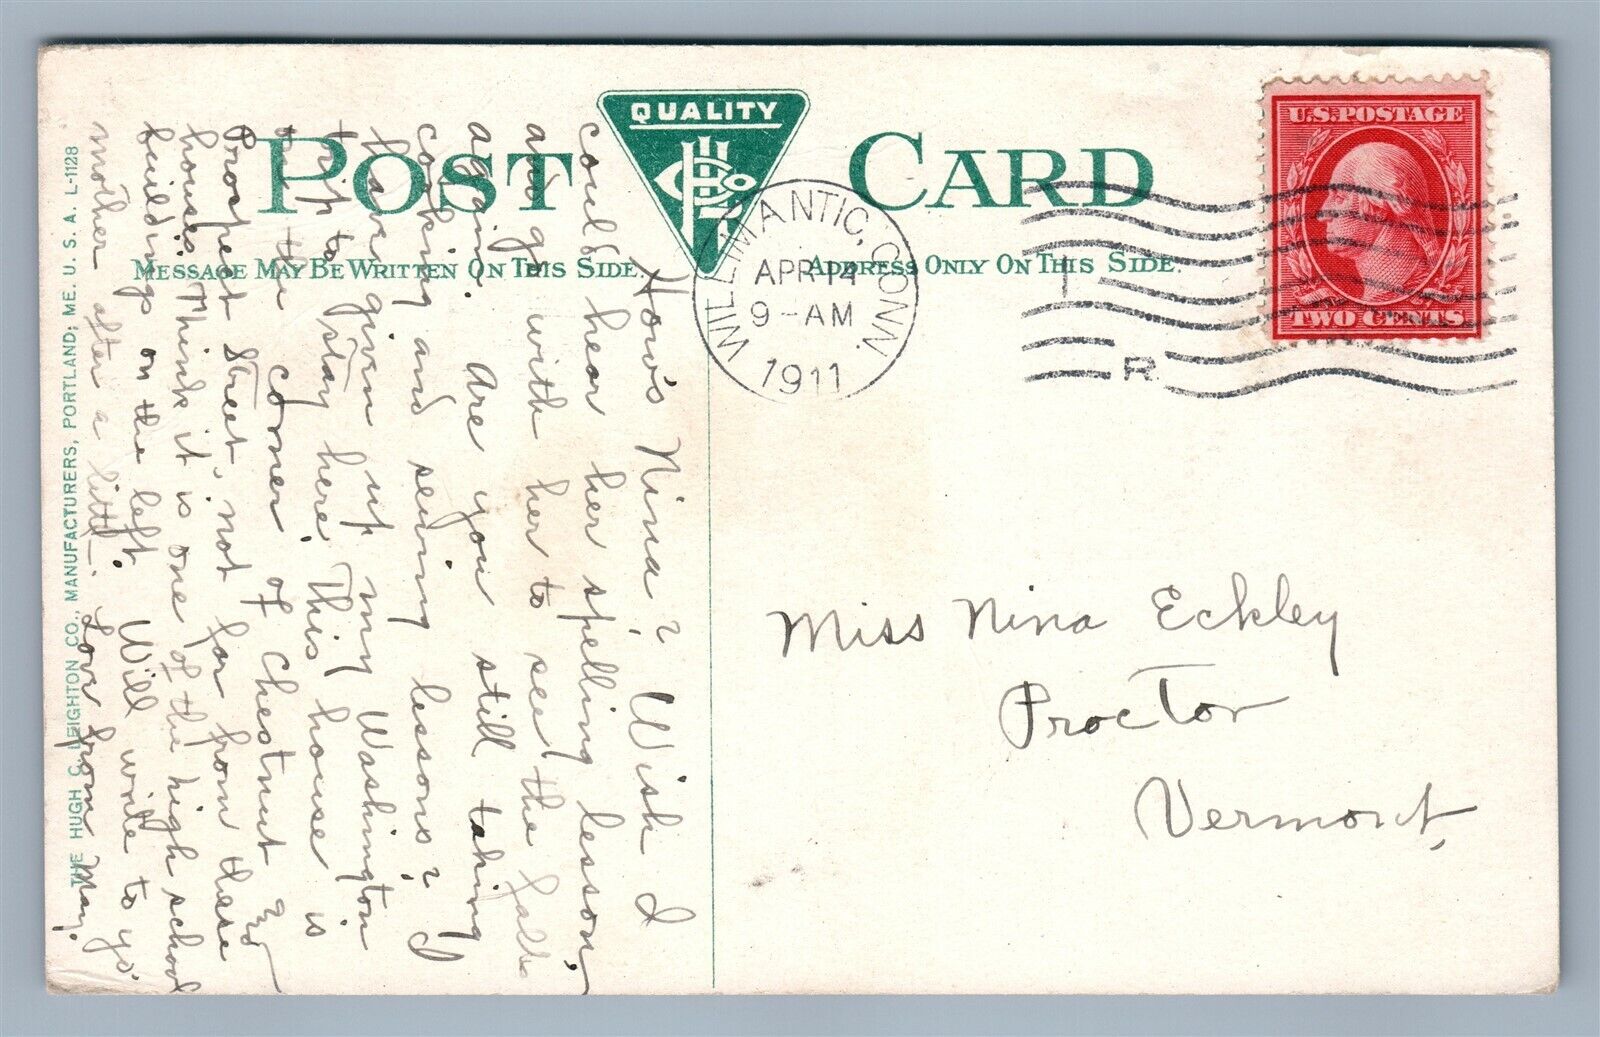 POST CARD
QUALITY
MESSAGE MAY BE WRITTEN ON THIS SIDE.
ADDRESS ONLY ON THIS SIDE.
U.S. POSTAGE
TWO CENTS
WILLIMANTIC, CONN.
APR 14
9-AM
1911
R
Miss Nina Eckley
Proctor
Vermont,
How's Nina? Wish I
could hear her spelling lesson,
and go with her to see the falls
again. Are you still taking
cooking and sewing lessons? I
have given up my Washington
trip to stay here. This house is
on the corner of Chestnut and
Prospect Street, not far from these
houses. Think it is one of the high school
buildings on the left. Will write to yo'
mother after a little. Love from May.
THE HUGH C. LEIGHTON CO., MANUFACTURERS, PORTLAND, ME. U. S. A. L-1128